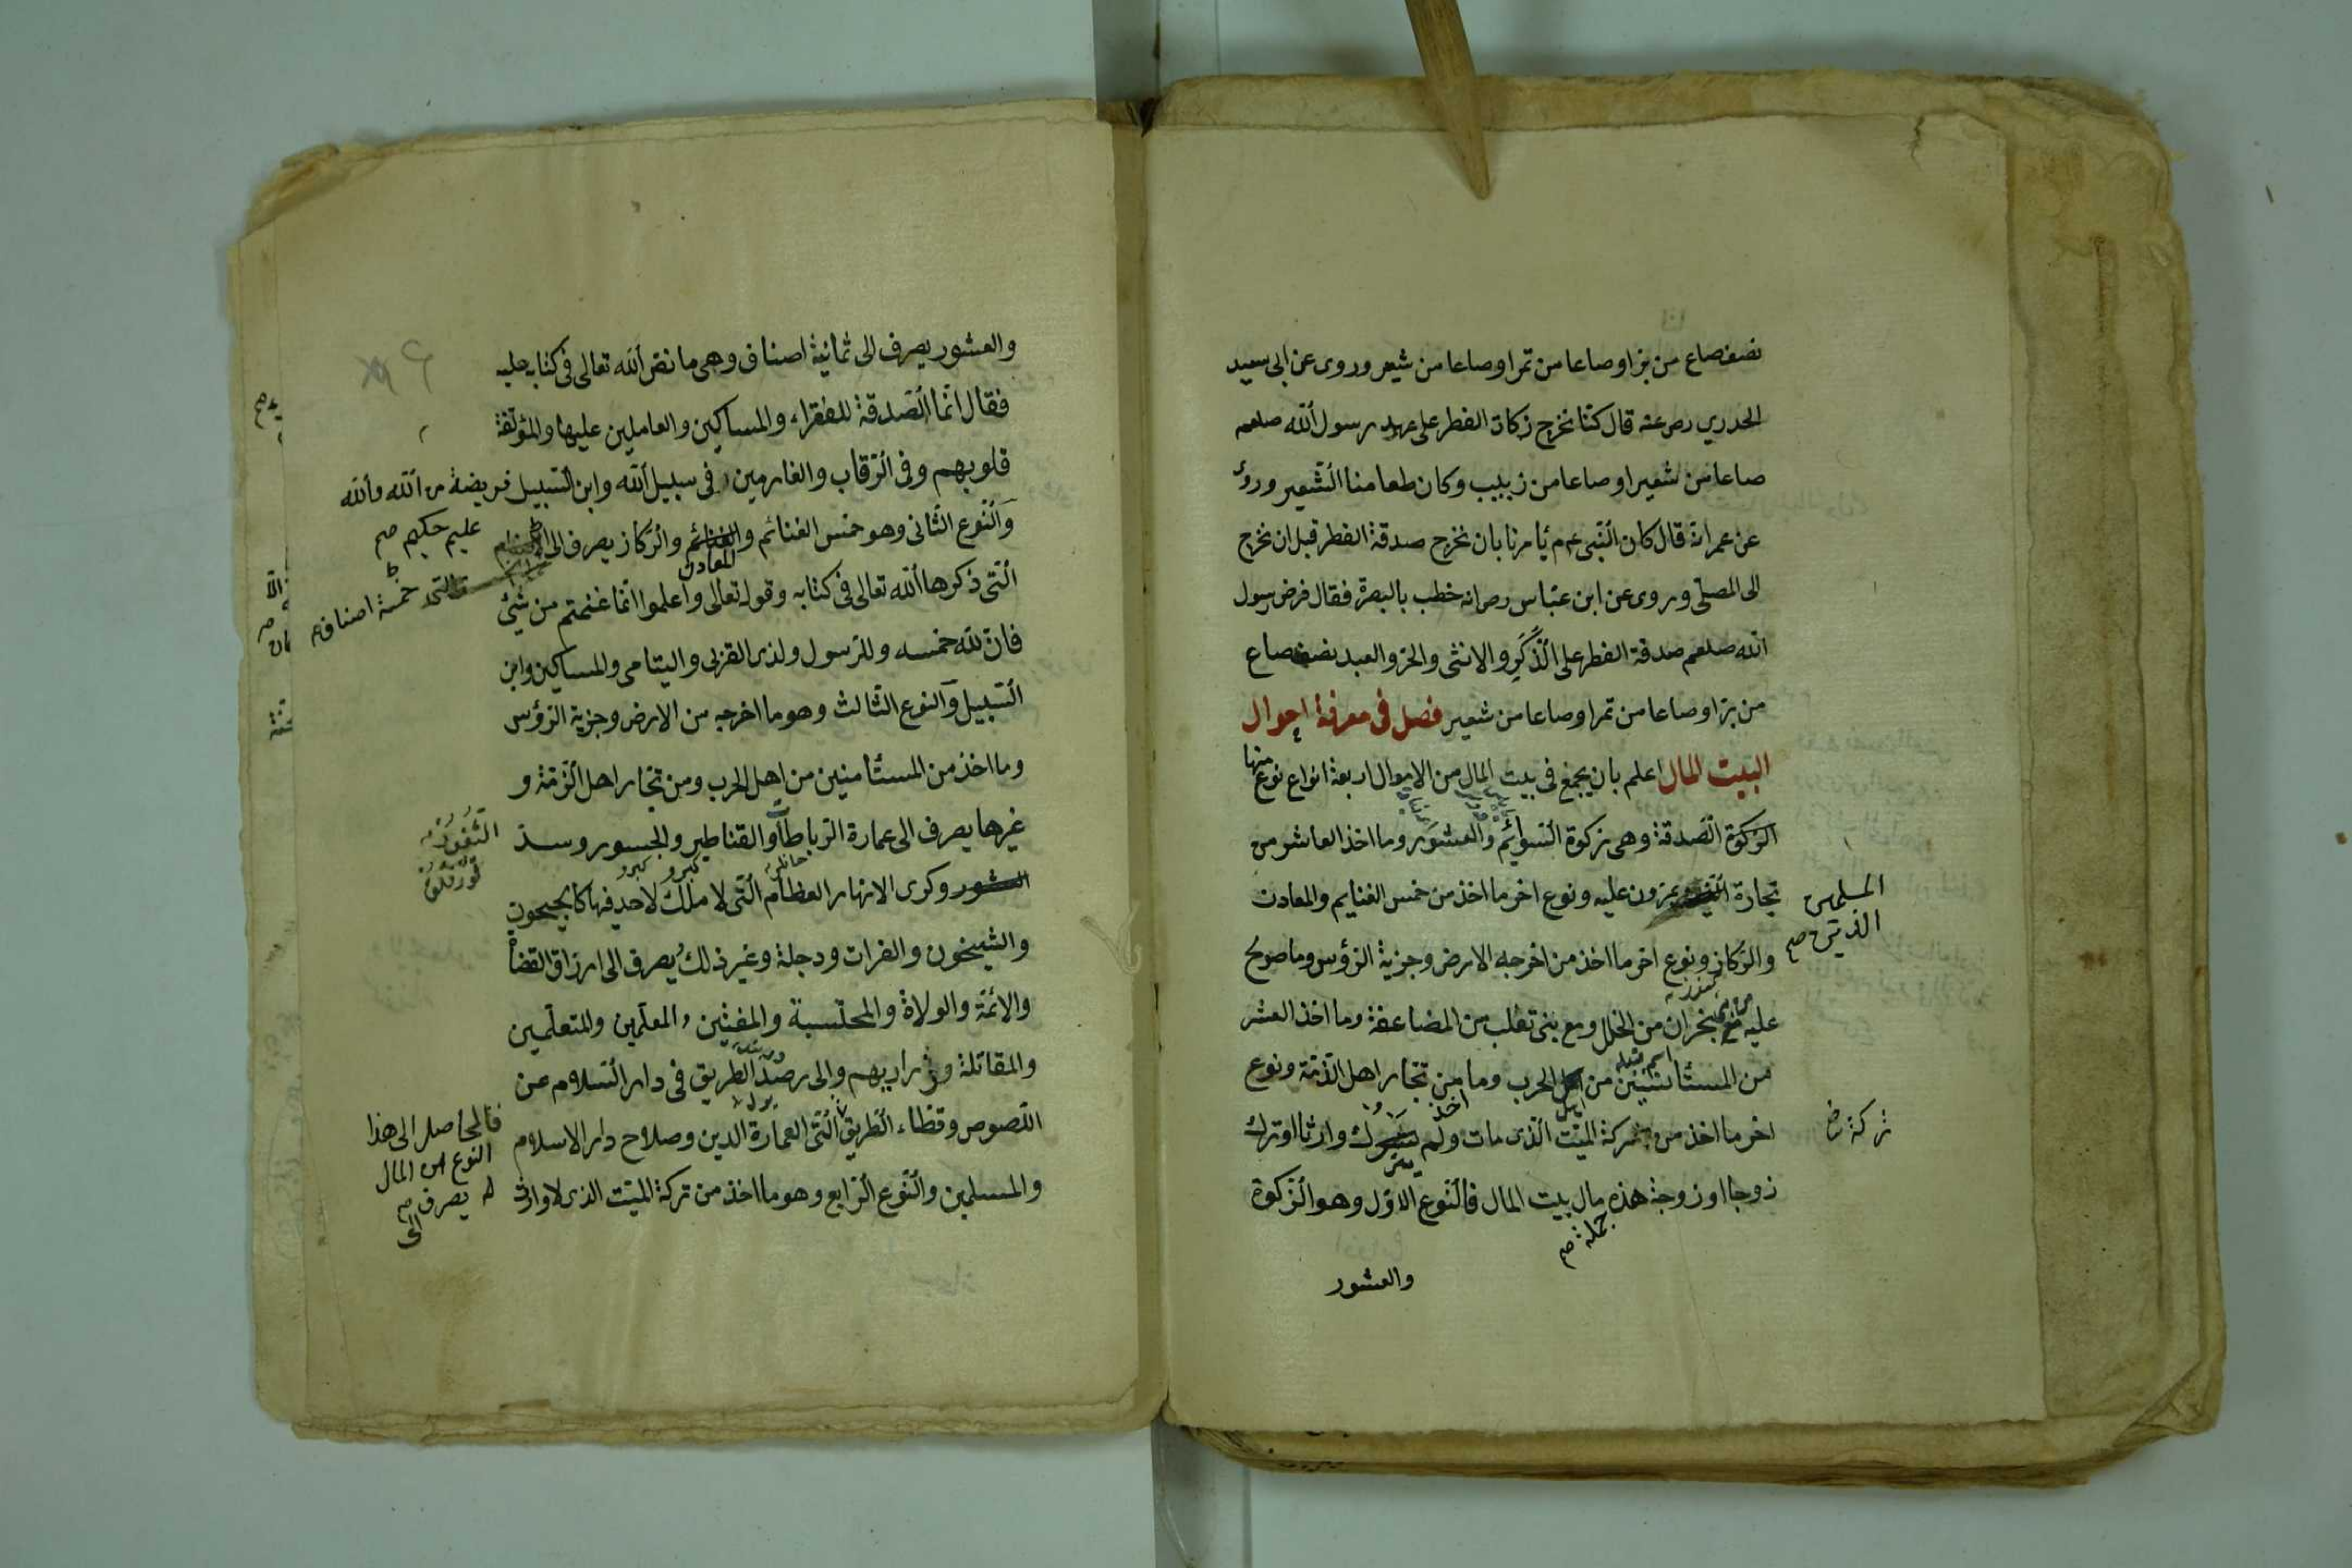 نصف صاع من بر او صاعا من تمر او صاعا من شعير وروى عن ابى سعيد
الخدري رضى عنه قال كنا نخرج زكاة الفطر على عهد رسول الله صلعم
صاعا من شعير او صاعا من زبيب وكان طعامنا الشعير وروى
عن عمر انه قال كان النبى عم يأمرنا بان نخرج صدقة الفطر قبل ان نخرج
الى المصلى وروى عن ابن عباس رض انه خطب بالبصرة فقال فرض رسول
الله صلعم صدقة الفطر على الذكر والانثى والحر والعبد نصف صاع
من بر او صاعا من تمر او صاعا من شعير فصل فى معرفة احوال
البيت المال اعلم بان يجمع فى بيت المال من الاموال اربعة انواع نوع منها
الزكوة الصدقة وهى زكوة السوائم والعشور وما اخذ العاشر من
تجارة يمرون عليه ونوع اخر ما اخذ من خمس الغنايم والمعادن
المسلمين
الذين صح
والركاز ونوع اخر ما اخذ من اخرجه الارض وجزية الرؤس وما صولح
عليه مع نجران من الحلل ومع بنى تغلب من المضاعفة وما اخذ العشر
من المستأمنين من اهل الحرب وما من تجار اهل الذمة ونوع
اخذ
اخر ما اخذ من تركة الميت الذى مات ولم يترك وارثا او ترك
تركة
زوجا او زوجة هذه مال بيت المال فالنوع الاول وهو الزكوة
جملة صح
والعشور
والعشور يصرف الى ثمانية اصناف وهى ما نص الله تعالى فى كتابه عليه
فقال انما الصدقة للفقراء والمساكين والعاملين عليها والمؤلفة
قلوبهم وفى الرقاب والغارمين وفى سبيل الله وابن السبيل فريضة من الله والله
عليم حكيم صح
والنوع الثانى وهو خمس الغنائم والمعادن والركاز يصرف الى
خمسة اصناف
التى ذكرها الله تعالى فى كتابه وقوله تعالى واعلموا انما غنمتم من شئ
فان لله خمسه وللرسول ولذى القربى واليتامى والمساكين وابن
السبيل والنوع الثالث وهو ما اخرجه من الارض وجزية الرؤس
وما اخذ من المستأمنين من اهل الحرب ومن تجار اهل الذمة و
غيرها يصرف الى عمارة الرباطات والقناطير والجسور وسد
الثغور
وكرى الانهار العظام التى لا ملك لاحد فيها كالجيحون
والشيخون والفرات ودجلة وغير ذلك يصرف الى ارزاق القضاة
والائمة والولاة والمحتسبة والمفتين والمعلمين والمتعلمين
والمقاتلة وذراريهم والى رصد الطريق فى دار السلام عن
اللصوص وقطاء الطريق التى العمارة الدين وصلاح دار الاسلام
فالحاصل الى هذا
النوع من المال
يصرف صح
الى
والمسلمين والنوع الرابع وهو ما اخذ من تركة الميت الذى لا وارث